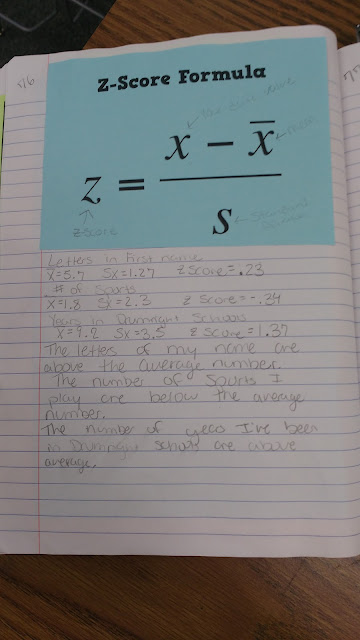 76
77
Z-Score Formula
z = x − x̅ / s
mean
z-score
standard
Letters in First name
x̅=5.7 Sx=1.27 z score=.23
# of Sports
x̅=1.8 Sx=2.3 z score=-.34
Years in Drumright Schools
Sx=3.5 z score=1.37
The letters of my name are
above the average number.
The number of Sports I
play are below the average
number.
The number of years I've been
in Drumright schools are above
average.